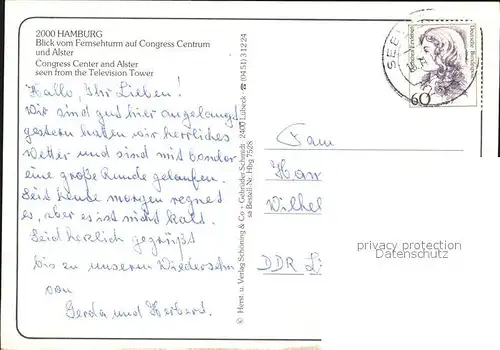 2000 HAMBURG
Blick vom Fernsehturm auf Congress Centrum
und Alster
Congress Center and Alster
seen from the Television Tower
Hallo, Ihr Lieben!
Wir sind gut hier angelangt,
gestern hatten wir herrliches
Wetter und sind mit
eine große Runde gelaufen.
Seit heute morgen regnet
es, aber es ist nicht kalt.
Seid herzlich gegrüßt
bis zu unserem Wiedersehn
von
Gerda und Herbert.
© Herst. u. Verlag Schöning & Co · Gebrüder Schmidt 2400 Lübeck ☎ (04 51) 3 12 24
sa Bestell-Nr. Hbg 7528
SEE
Deutsche Bundespost
60
Fam
Wilhel
DDR
privacy protection
ansichtskarten-lexikon.de